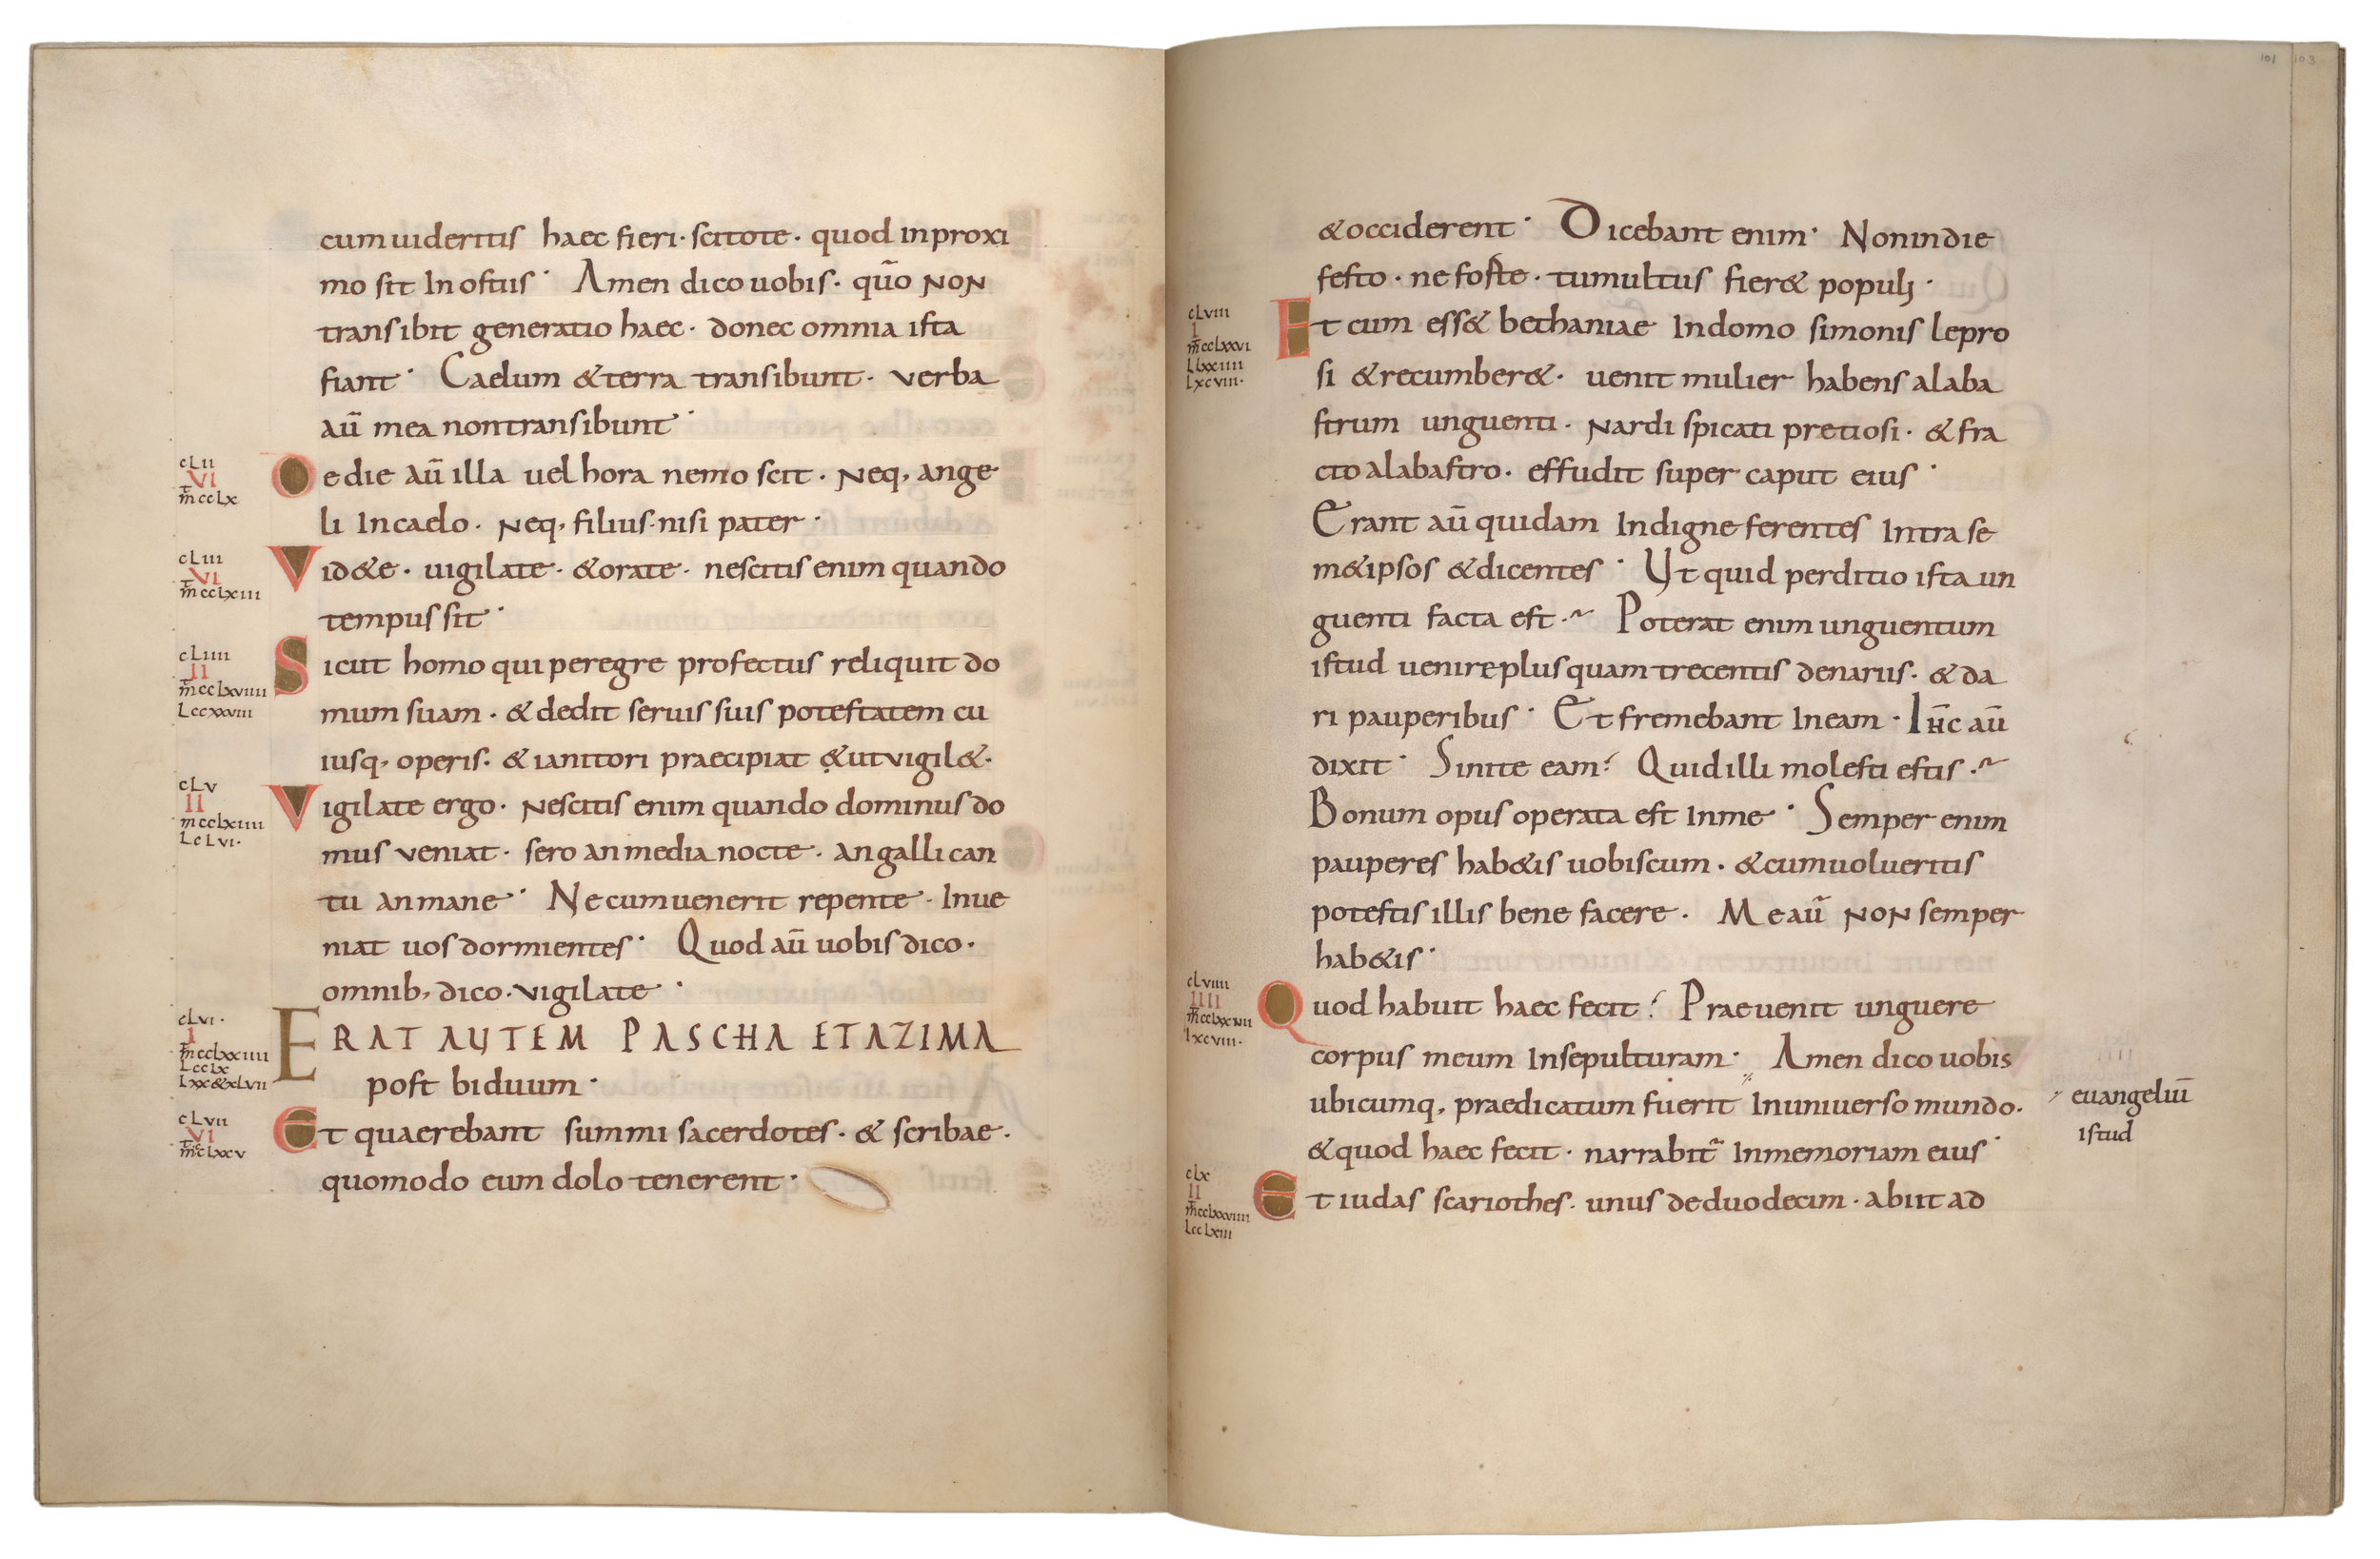 cum uideritis haec fieri· scitote· quod in proxi
mo sit In ostiis· Amen dico uobis· qūo NON
transibit generatio haec· donec omnia ista
fiant· Caelum & terra transibunt· verba
aū mea non transibunt·
cLii
VI
m̄ccLx
De die aū illa uel hora nemo scit· Neq, ange
li In caelo· Neq, filius· nisi pater·
cLiii
VI
m̄ccLxiii
Vid&e· uigilate· & orate· nescitis enim quando
tempus sit·
cLiiii
II
m̄ccLxviiii
Lccxxviii
Sicut homo qui peregre profectus reliquit do
mum suam· & dedit seruis suis potestatem cu
iusq, operis· & ianitori praecipiat &ut vigil&·
cLv
II
m̄ccLxiiii
LcLvi·
Vigilate ergo· Nescitis enim quando dominus do
mus veniat· sero an media nocte· an galli can
tu an mane· Ne cum uenerit repente· Inue
niat uos dormientes· Quod aū uobis dico·
omnib, dico· vigilate·
cLvi·
I
m̄ccLxxiiii
LccLx
Lxx&xLvii
ERAT AUTEM PASCHA ET AZIMA
post biduum·
cLvii
VI
m̄ccLxxv
Et quaerebant summi sacerdotes· & scribae·
quomodo eum dolo tenerent·
101 103
& occiderent· Dicebant enim· Non in die
festo· ne foste· tumultus fier& populi·
cLviii
I
m̄ccLxxvi
Lxcviii·
Et cum ess& bethaniae In domo simonis lepro
si & recumber&· uenit mulier habens alaba
strum unguenti· Nardi spicati pretiosi· & fra
cto alabastro· effudit super caput eius·
Erant aū quidam Indigne ferentes Intra se
m&ipsos & dicentes· Ut quid perditio ista un
guenti facta est·~ Poterat enim unguentum
istud uenire plus quam trecentis denariis· & da
ri pauperibus· Et fremebant In eam· Ih̄c aū
dixit· Sinite eam! Quid illi molesti estis·~
Bonum opus operata est In me· Semper enim
pauperes hab&is uobiscum· & cum uolueritis
potestis illis bene facere· Me aū NON semper
hab&is·
cLviiii
IIII
Lxcviii·
Quod habuit haec fecit! Praeuenit unguere
corpus meum In sepulturam· Amen dico uobis
ubicumq, praedicatum fuerit In uniuerso mundo·
euangeliū
istud
& quod haec fecit· narrabit̄ In memoriam eius·
cLx
II
m̄ccLxxviiii
LccLxiii
Et iudas scariothes· unus de duodecim· abiit ad